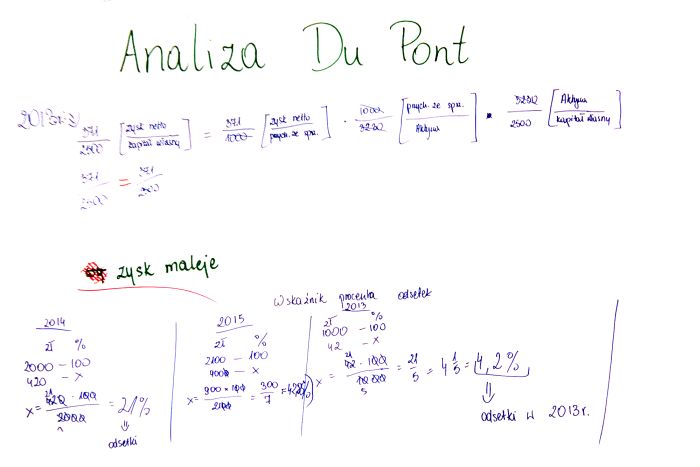 Analiza Du Pont
371/2500 [zysk netto/kapitał własny] = 371/1000 [zysk netto/przych. ze sprz.] · 1000/3220 [przych. ze sprz./Aktywa] · 3220/2500 [Aktywa/kapitał własny]
=
zysk maleje
Wskaźnik procenta odsetek
2014
zł %
2000 – 100
420 – x
x = 420 · 100 / 2000 = 21%
odsetki
2015
zł %
2100 – 100
x = 900 · 100 / 2100 = 300/7
2013
zł %
1000 – 100
42 – x
x = 42 · 100 / 1000 = 21/5 = 4 1/5 = 4,2%
odsetki w 2013r.